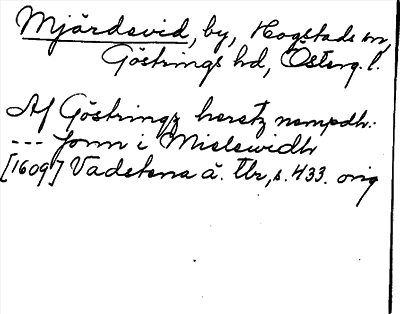 Mjärdevid, by, Hogstads sn,
Göstrings hd, Österg. l.
Af Göstringz heretz nempdh:
--- Jonn i Mielewidh
[1609] Vadstena ä. tbr, s. 433. orig